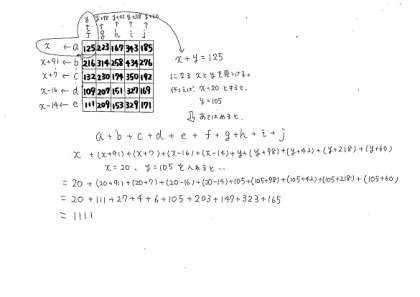 y y+98 y+42 y+218 y+60
↑ ↑ ↑ ↑ ↑
f g h i j
x ← a 125 223 167 343 185
x+91 ← b 216 314 258 434 276
x+7 ← c 132 230 174 350 192
x-16 ← d 109 207 151 327 169
x-14 ← e 111 209 153 329 171
x+y=125
になる xとyを見つける。
例えば x=20 とすると、
y=105
⇓ あてはめると、
a+b+c+d+e+f+g+h+i+j
x+(x+91)+(x+7)+(x-16)+(x-14)+y+(y+98)+(y+42)+(y+218)+(y+60)
x=20、y=105を入れると…
=20+(20+91)+(20+7)+(20-16)+(20-14)+105+(105+98)+(105+42)+(105+218)+(105+60)
=20+111+27+4+6+105+203+147+323+165
=1111